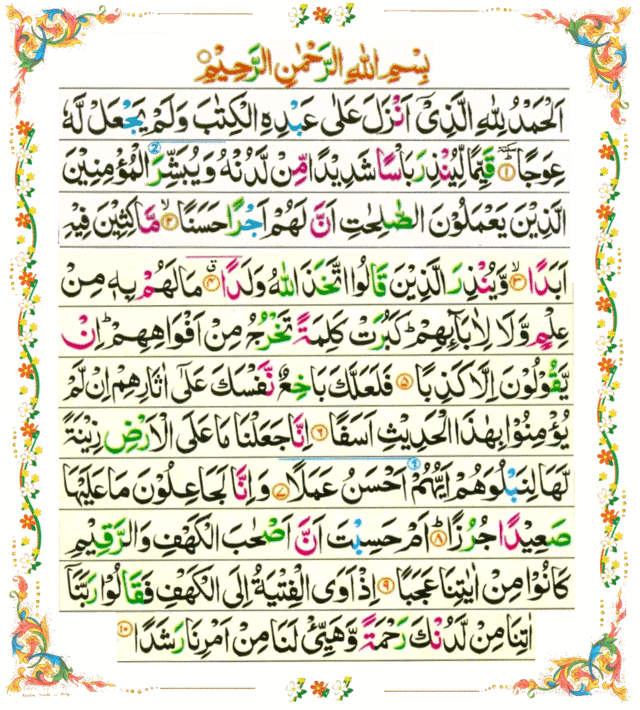 بِسْمِ اللهِ الرَّحْمٰنِ الرَّحِيْمِ
اَلْحَمْدُ لِلّٰهِ الَّذِيْٓ اَنْزَلَ عَلٰى عَبْدِهِ الْكِتٰبَ وَلَمْ يَجْعَلْ لَّهٗ
عِوَجًا ؕ ﴿۱﴾ قَيِّمًا لِّيُنْذِرَ بَاْسًا شَدِيْدًا مِّنْ لَّدُنْهُ وَيُبَشِّرَ الْمُؤْمِنِيْنَ
الَّذِيْنَ يَعْمَلُوْنَ الصّٰلِحٰتِ اَنَّ لَهُمْ اَجْرًا حَسَنًا ۙ﴿۲﴾ مَّاكِثِيْنَ فِيْهِ
اَبَدًا ۙ﴿۳﴾ وَّيُنْذِرَ الَّذِيْنَ قَالُوا اتَّخَذَ اللهُ وَلَدًا ۗ﴿۴﴾ مَا لَهُمْ بِهٖ مِنْ
عِلْمٍ وَّلَا لِاٰبَآئِهِمْ ؕ كَبُرَتْ كَلِمَةً تَخْرُجُ مِنْ اَفْوَاهِهِمْ ؕ اِنْ
يَّقُوْلُوْنَ اِلَّا كَذِبًا ﴿۵﴾ فَلَعَلَّكَ بَاخِعٌ نَّفْسَكَ عَلٰٓى اٰثَارِهِمْ اِنْ لَّمْ
يُؤْمِنُوْا بِهٰذَا الْحَدِيْثِ اَسَفًا ﴿۶﴾ اِنَّا جَعَلْنَا مَا عَلَى الْاَرْضِ زِيْنَةً
لَّهَا لِنَبْلُوَهُمْ اَيُّهُمْ اَحْسَنُ عَمَلًا ﴿۷﴾ وَاِنَّا لَجَاعِلُوْنَ مَا عَلَيْهَا
صَعِيْدًا جُرُزًا ؕ﴿۸﴾ اَمْ حَسِبْتَ اَنَّ اَصْحٰبَ الْكَهْفِ وَالرَّقِيْمِ
كَانُوْا مِنْ اٰيٰتِنَا عَجَبًا ﴿۹﴾ اِذْ اَوَى الْفِتْيَةُ اِلَى الْكَهْفِ فَقَالُوْا رَبَّنَآ
اٰتِنَا مِنْ لَّدُنْكَ رَحْمَةً وَّهَيِّئْ لَنَا مِنْ اَمْرِنَا رَشَدًا ﴿۱۰﴾